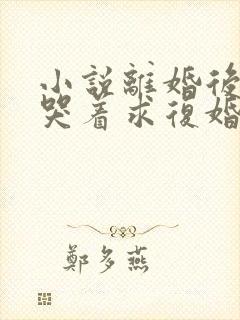 小説離婚後
哭着求復婚
鄭多燕